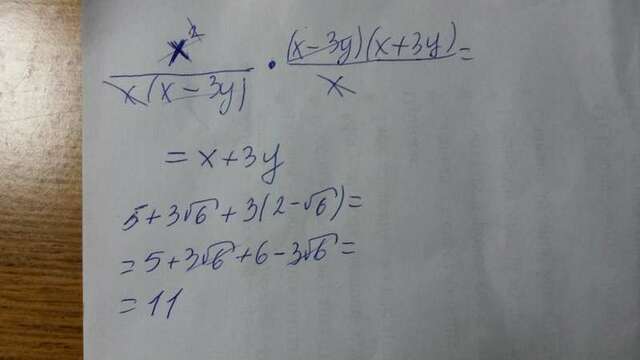 x² / x(x − 3y) • (x − 3y)(x + 3y) / x =
= x + 3y
5 + 3√6 + 3(2 − √6) =
= 5 + 3√6 + 6 − 3√6 =
= 11